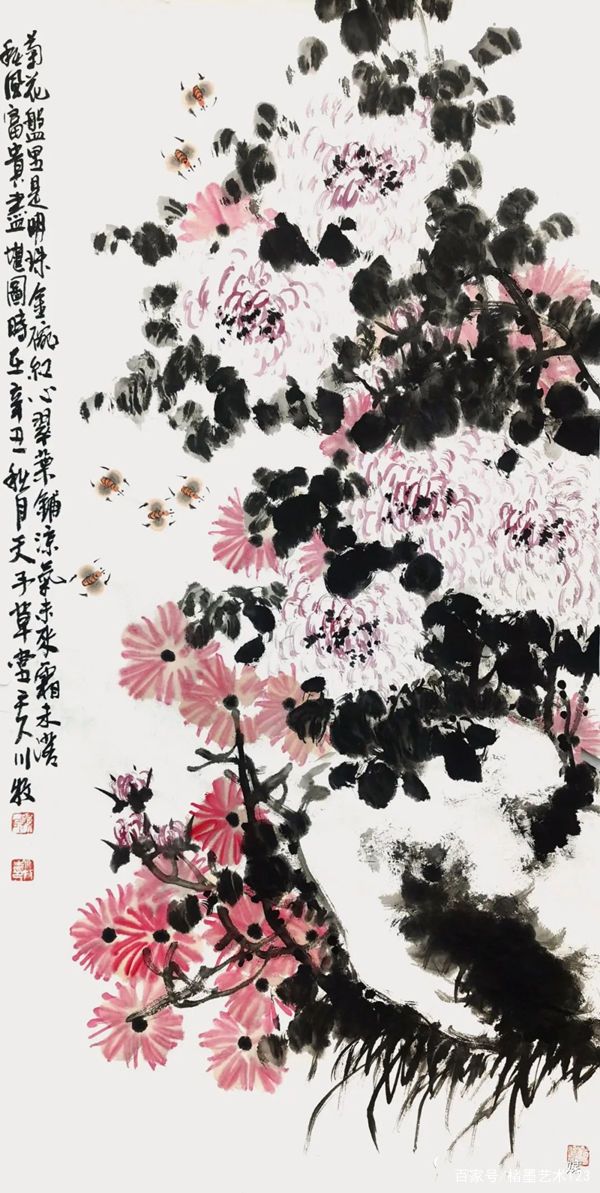 菊花盤里是明珠金碗紅心翠葉鋪涼氣未來霜未落
秋風富貴盡堪圖時在辛丑秋月天子草堂主人川牧
百家号/楮墨艺术123